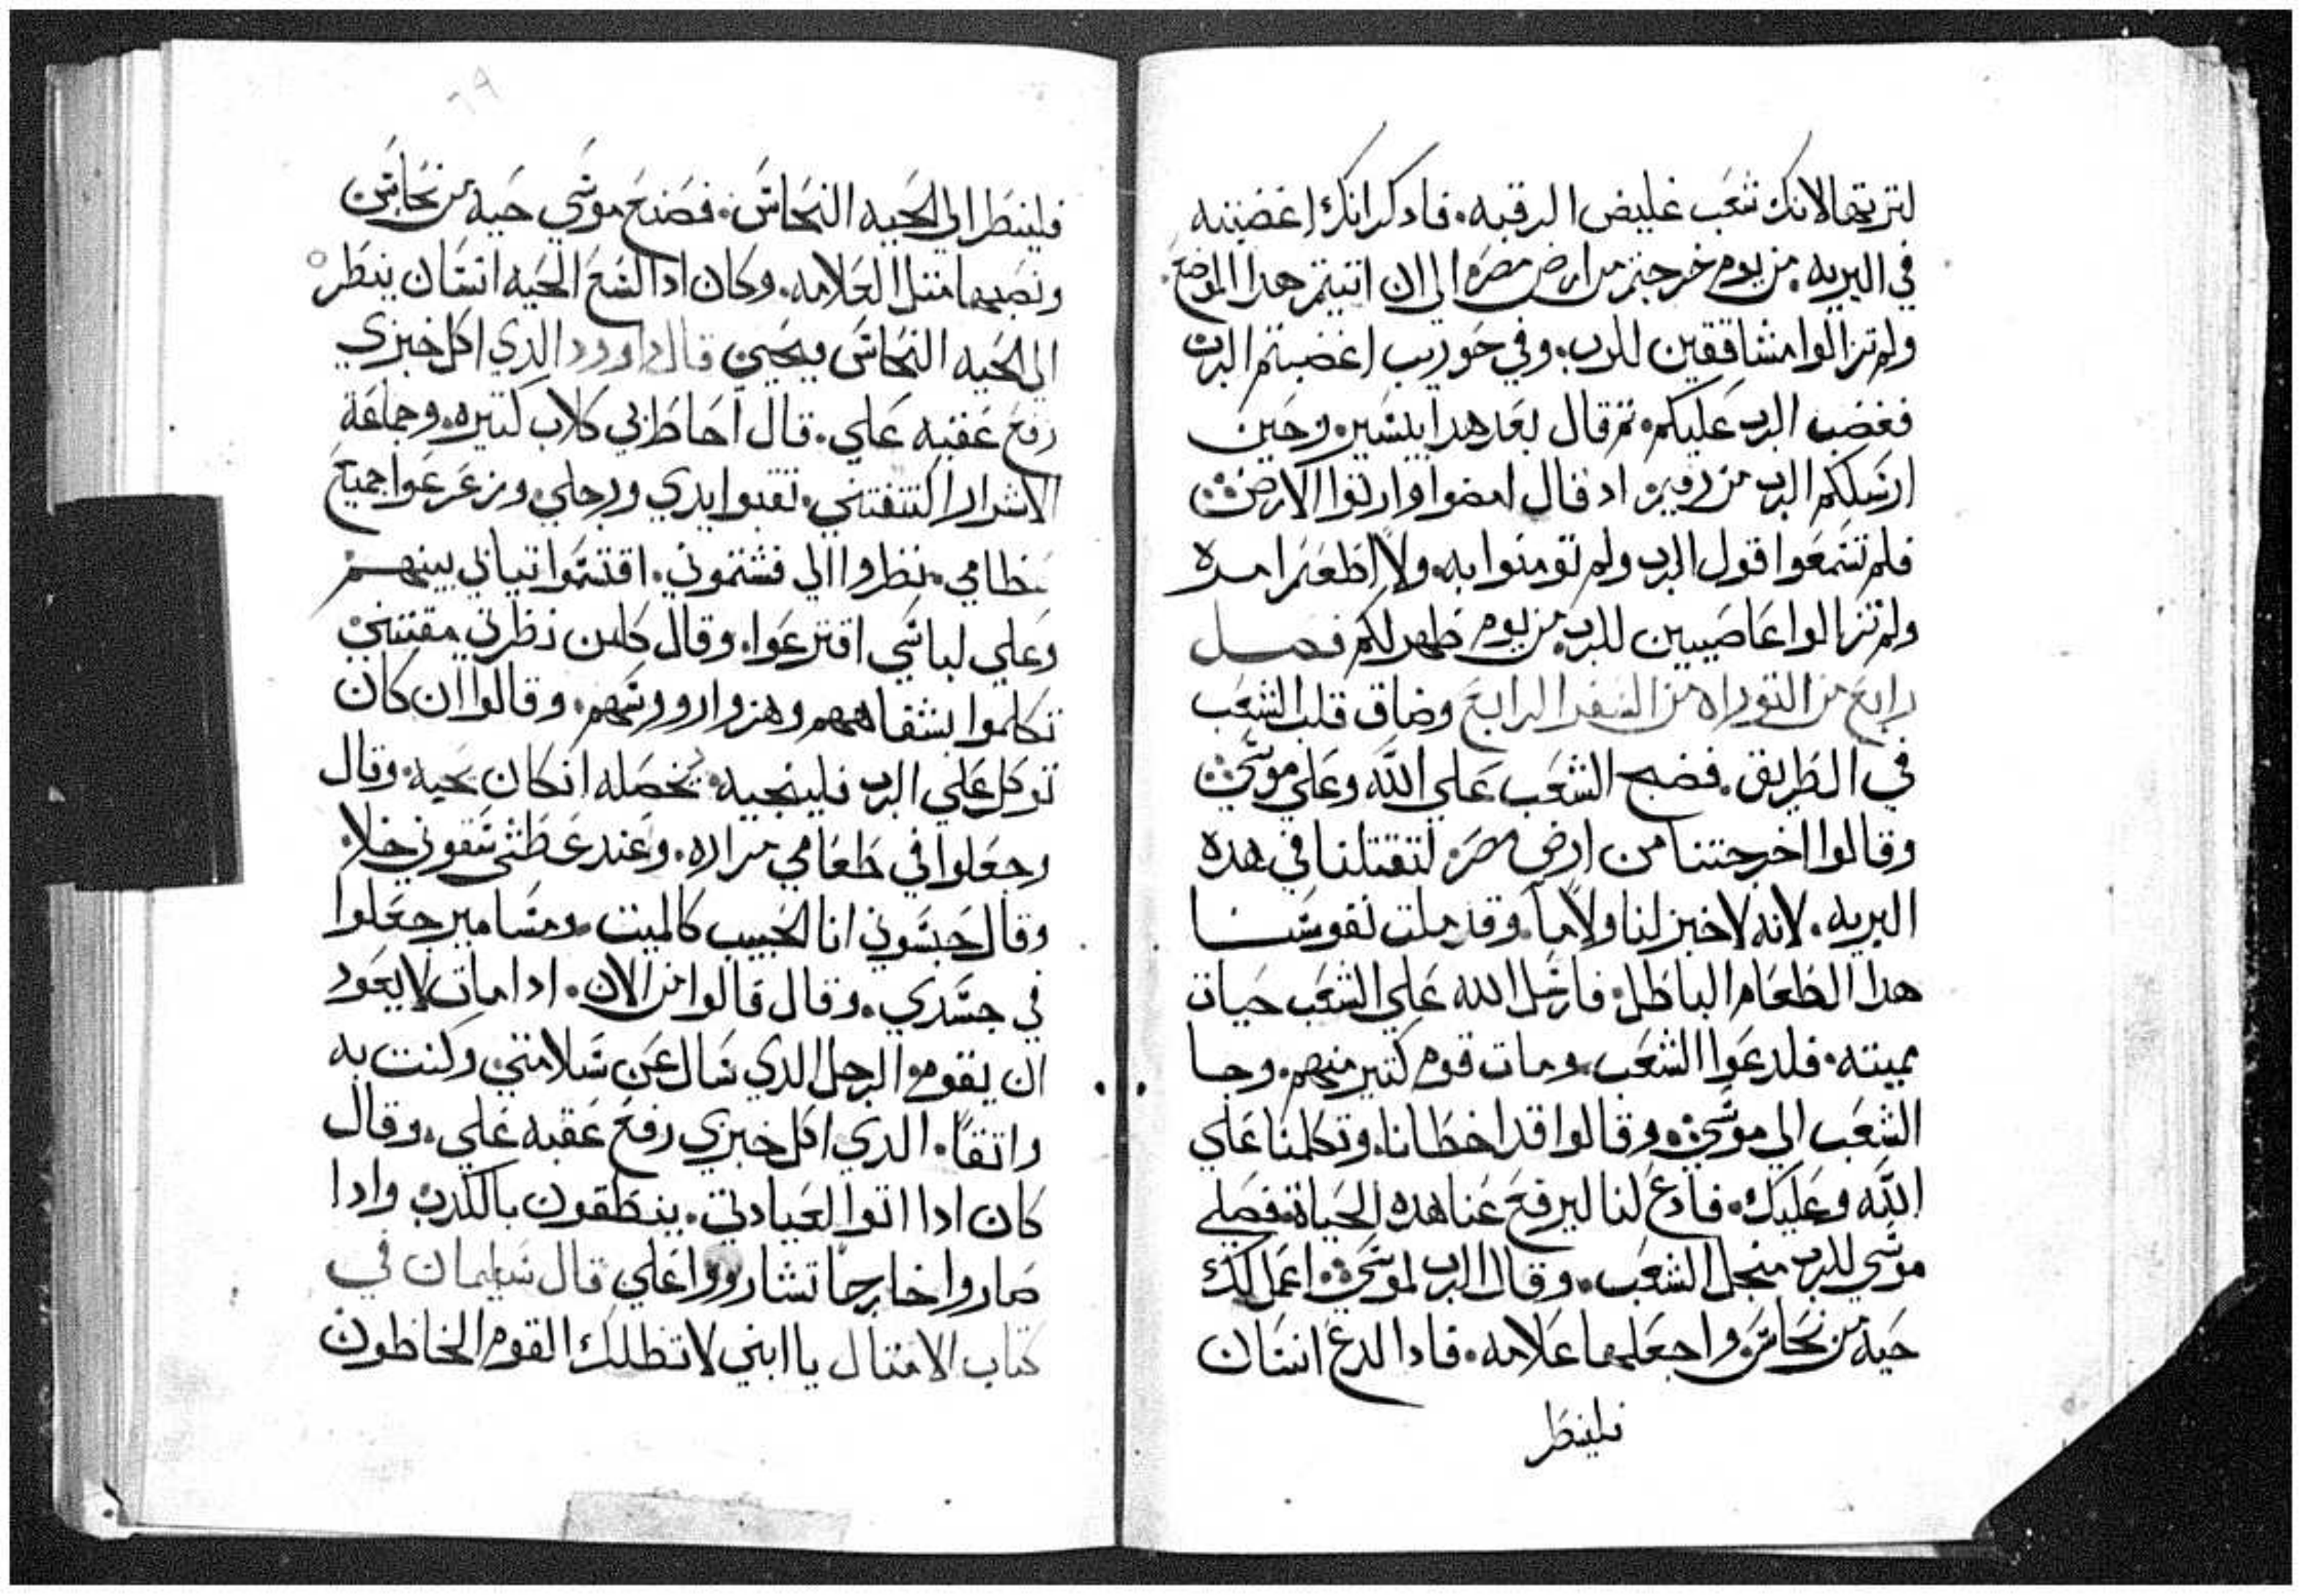 لترتها لانك شعب غليض الرقبه. فادكر انك اغضبته
في البريه. من يوم خرجتم من ارض مصر الي ان اتيتم هدا الموضع.
ولم تزالوا مشاققين للرب. وفي حوريب اغضبتم الرب
فغضب الرب عليكم. تم قال بعد هدا بيسير. وحين
ارسلكم الرب من رقيم اد قال امضوا وارتوا الارض
فلم تسمعوا قول الرب ولم تومنوا به. ولا اطعتم امره
ولم تزالوا عاصيين للرب من يوم ظهر لكم فصل
رابع من التوراه من السفر الرابع وضاق قلب الشعب
في الطريق. فضج الشعب علي الله وعلي موسي
وقالوا اخرجتنا من ارض مصر لتقتلنا في هده
البريه. لانه لا خبز لنا ولا ما. وقد ملت نفوسنا
هدا الطعام الباطل. فارسل الله علي الشعب حيات
مميته. فلدعوا الشعب ومات قوم كتير منهم. وجا
الشعب الي موسي وقالوا قد اخطانا. وتكلمنا علي
الله وعليك. فادع لنا ليرفع عنا هده الحياة. فصلي
موسي للرب منجل الشعب. وقال الرب لموسي اعمل لك
حية من نحاس واجعلها علامه. فادا لدغ انسان
فلينظر
٦٩
فلينطر الي الحيه النحاس. فصنع موسي حية من نحاس
ونصبها متل العلامه. وكان ادا لسع الحيه انسان ينطر
الي الحيه النحاس ويحيي قال داوود الدي اكل خبزي
رفع عقبه علي. قال احاط بي كلاب كتيره. وجماعة
الاشرار اكتنفتني. تقبوا يدي ورجلي. وزعزعوا جميع
عظامي. نظروا الي فشتموني. اقتسموا تيابي بينهم
وعلي لباسي اقترعوا. وقال كلمن نظرني مقتني
تكلموا بشفاههم وهزوا رووسهم. وقالوا ان كان
توكل علي الرب فلينجيه. يخصله انكان يحبه. وقال
وجعلوا في طعامي مراره. وعند عطشي سقوني خلا.
وقال حبسوني انا الحبيب كالميت. ومسامير جعلوا
في جسدي. وقال قالوا من الان. ادا مات لا يعود
ان يقوم. الرجل الدي سال عن سلامتي وكنت به
واتقا. الدي اكل خبزي رفع عقبه علي. وقال
كان ادا اتوا لعيادتي. ينطقون بالكدب وادا
صاروا خارجا تشاوروا علي قال سليمان في
كتاب الامتال يا ابني لا تظلك القوم الخاطون